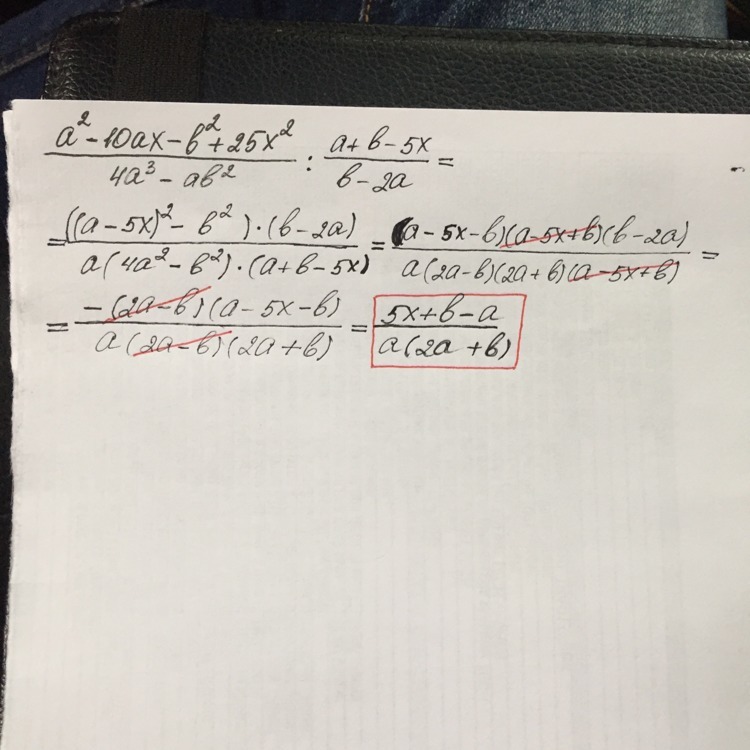 a² - 10ax - b² + 25x² / 4a³ - ab² : a + b - 5x / b - 2a =
= ((a - 5x)² - b²) · (b - 2a) / a(4a² - b²) · (a + b - 5x) = (a - 5x - b)(a - 5x + b)(b - 2a) / a(2a - b)(2a + b)(a - 5x + b) =
= -(2a - b)(a - 5x - b) / a(2a - b)(2a + b) = 5x + b - a / a(2a + b)